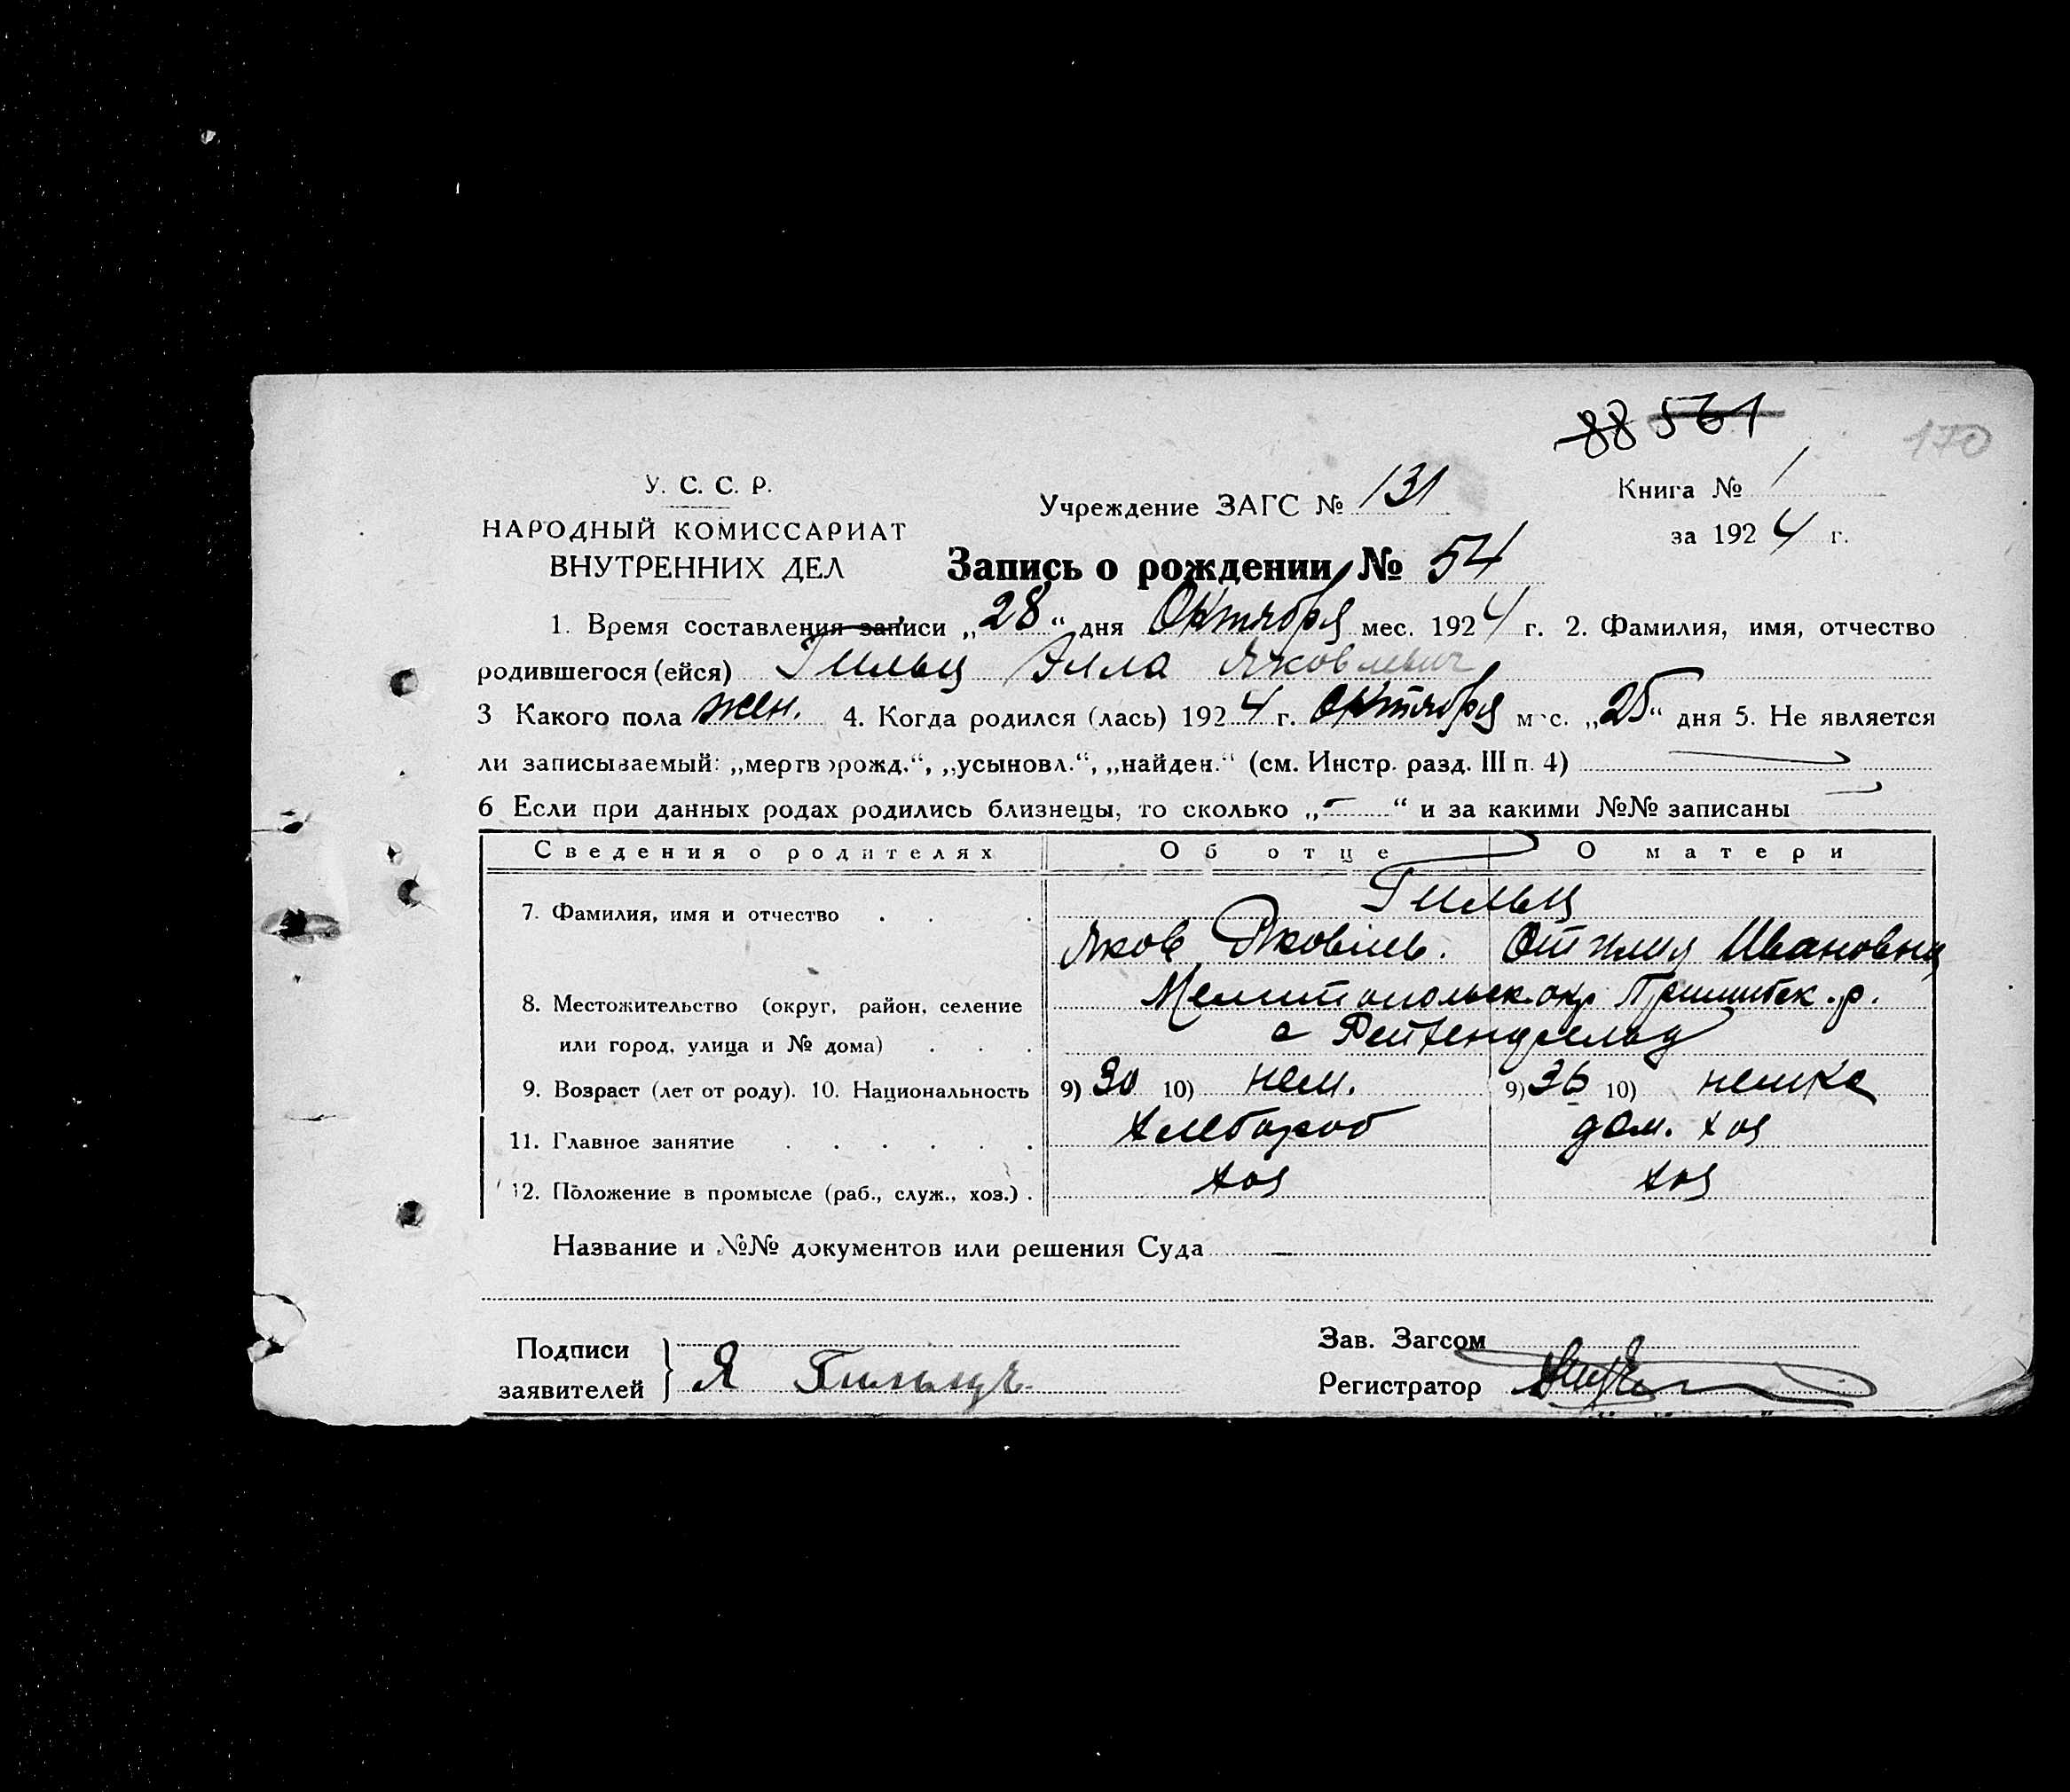 88 561
170
У. С. С. Р.
НАРОДНЫЙ КОМИССАРИАТ
ВНУТРЕННИХ ДЕЛ
Учреждение ЗАГС № 131
Книга № 1
за 1924 г.
Запись о рождении № 54
1. Время составления записи „28“ дня Октября мес. 1924 г. 2. Фамилия, имя, отчество
родившегося (ейся) Гильц Элла Яковлевич
3 Какого пола жен. 4. Когда родился (лась) 1924 г. Октября мес. „25“ дня 5. Не является
ли записываемый: „мертворожд.“, „усыновл.“, „найден.“ (см. Инстр. разд. III п. 4)
6 Если при данных родах родились близнецы, то сколько „—“ и за какими №№ записаны
Сведения о родителях Об отце О матери
7. Фамилия, имя и отчество . . . Гильц
Яков Яковлев. Отилия Ивановна
8. Местожительство (округ, район, селение Мелитопольск. окр Пришибск. р.
или город, улица и № дома) . . . с Рейхенфельд
9. Возраст (лет от роду). 10. Национальность 9) 30 10) нем. 9) 36 10) немка
11. Главное занятие . . . . . . Хлебороб дом. хоз
12. Положение в промысле (раб., служ., хоз.) . хоз хоз
Название и №№ документов или решения Суда —
Подписи
заявителей } Я Гильцъ
Зав. Загсом
Регистратор